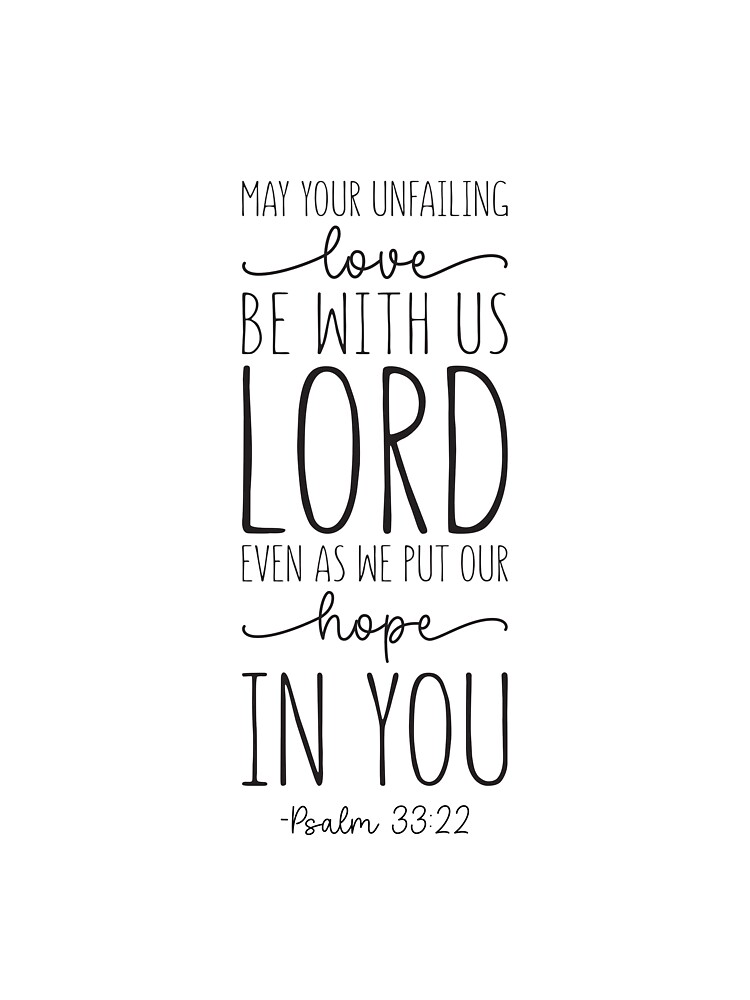 MAY YOUR UNFAILING
love
BE WITH US
LORD
EVEN AS WE PUT OUR
hope
IN YOU
-Psalm 33:22